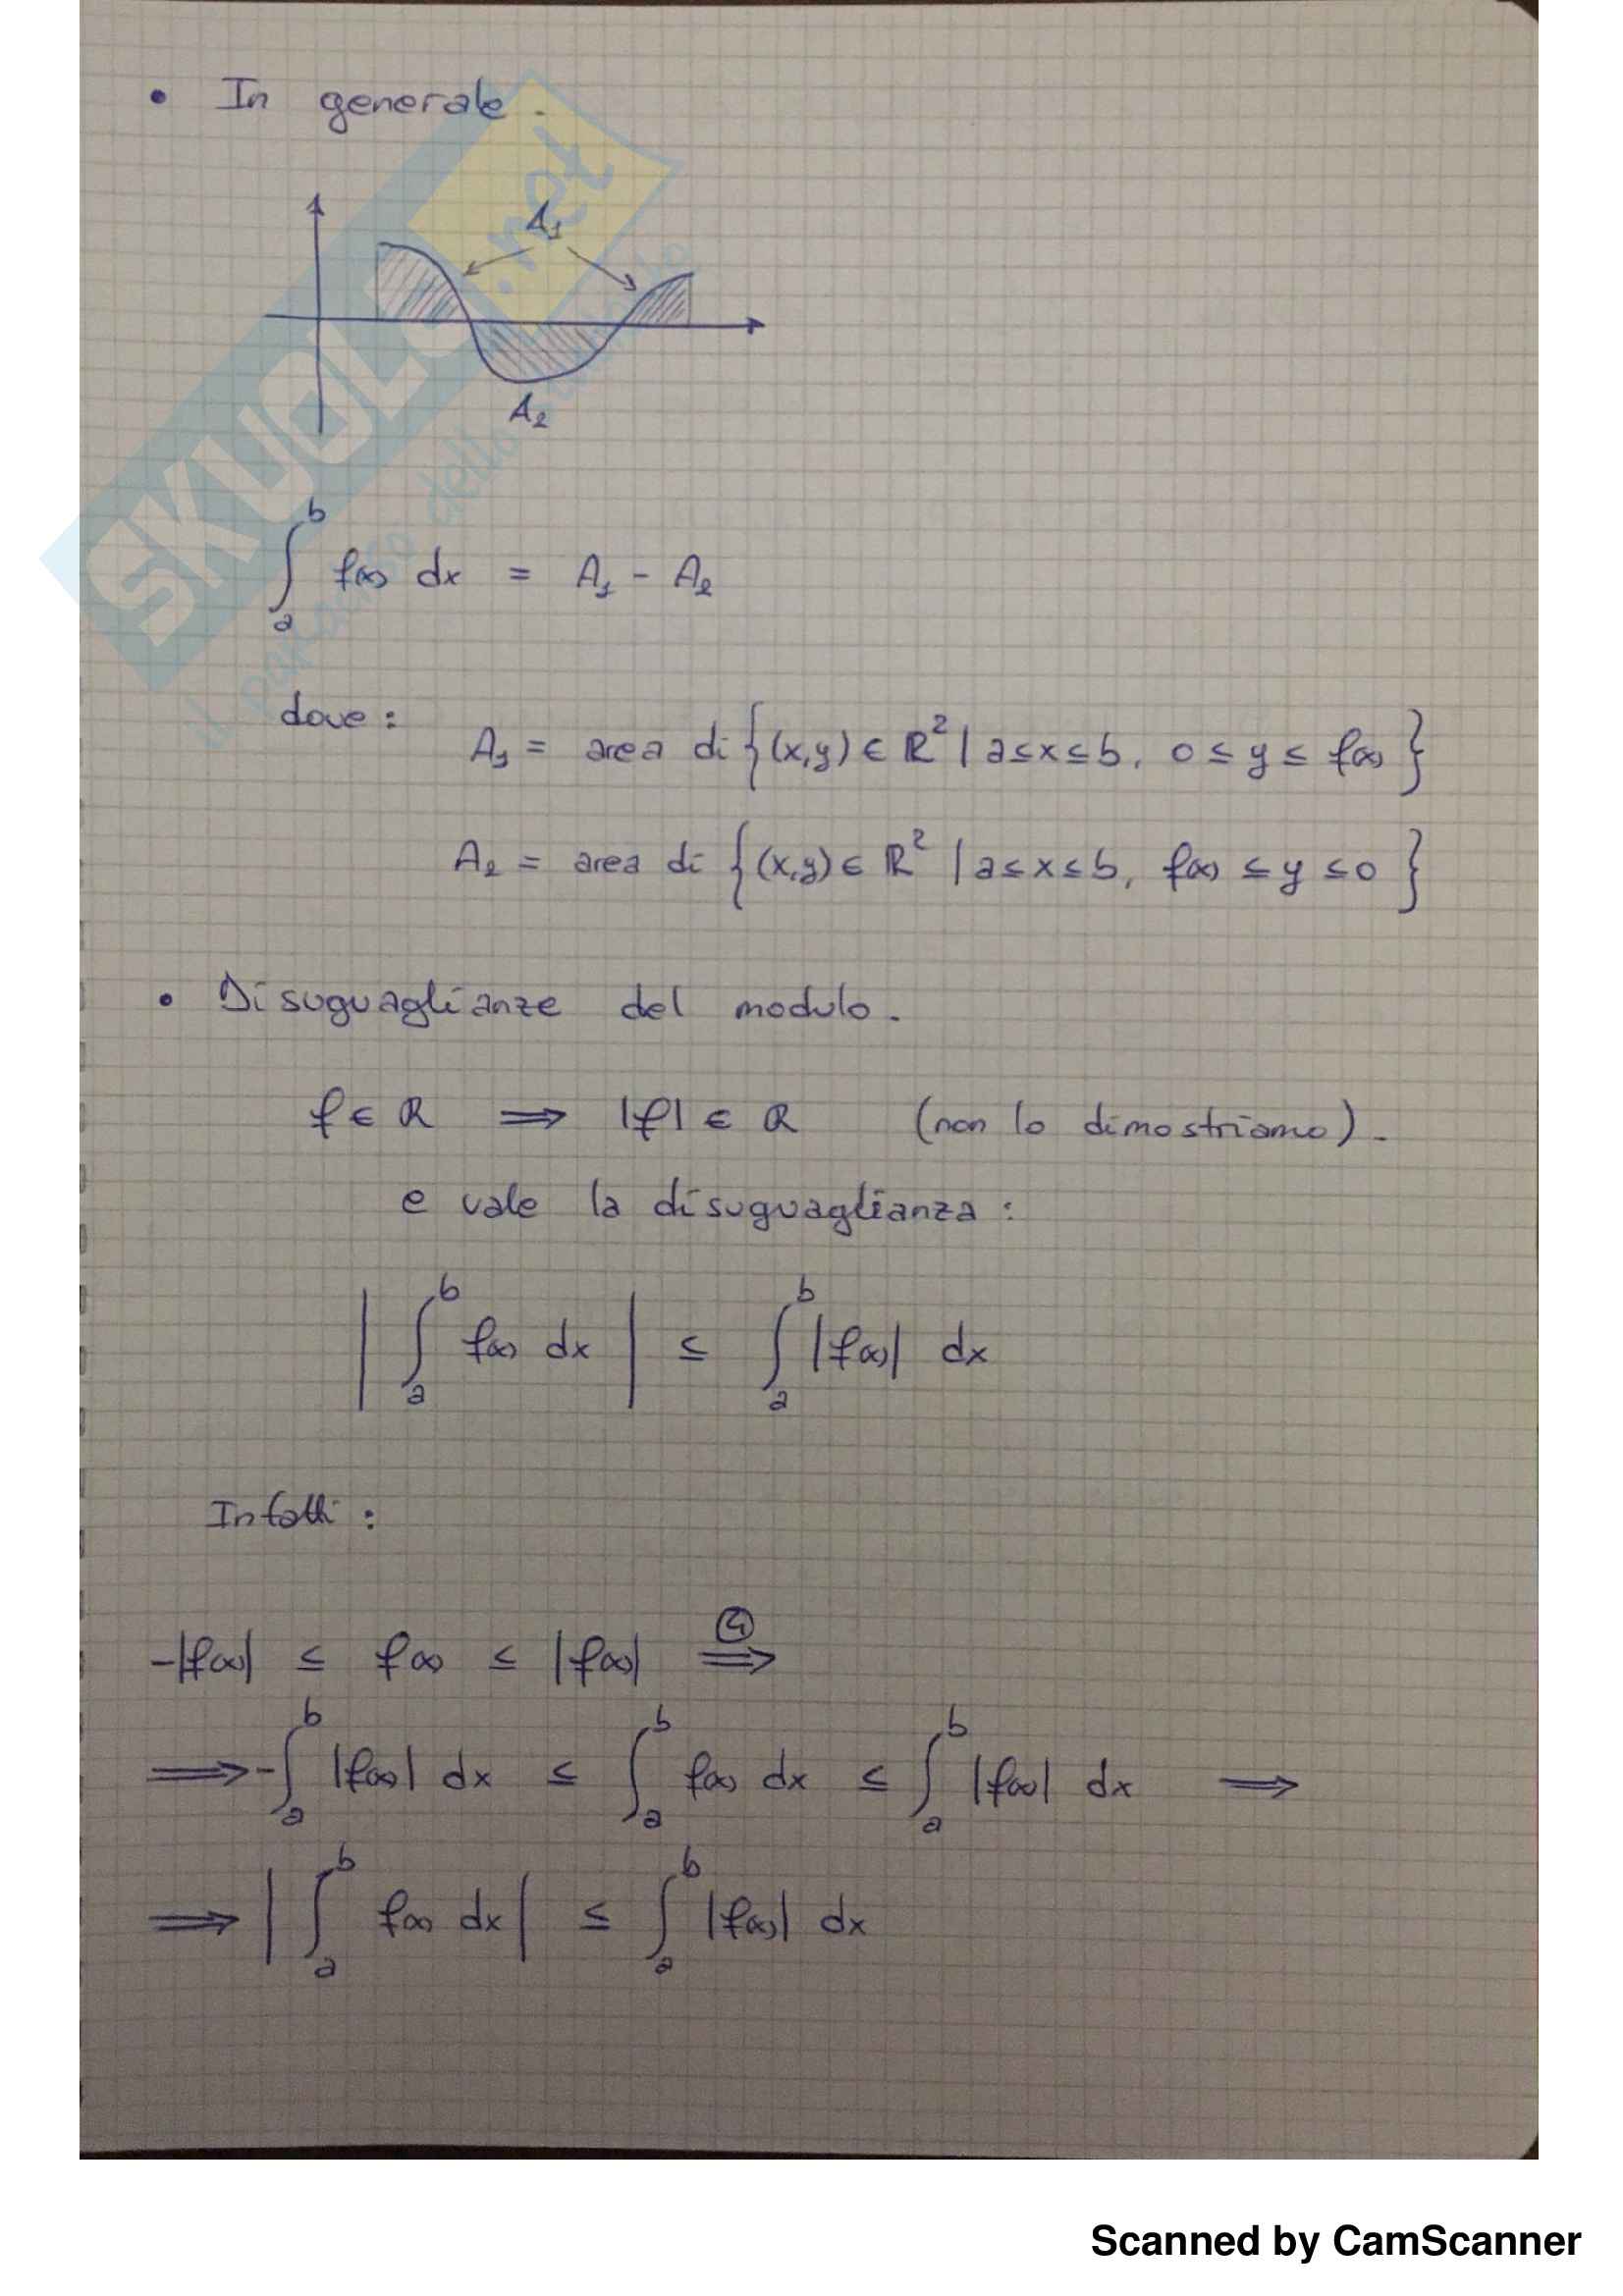 • In generale.
A₁
A₂
∫ₐᵇ f(x) dx = A₁ - A₂
dove:
A₁ = area di {(x,y) ∈ ℝ² | a≤x≤b, 0 ≤ y ≤ f(x)}
A₂ = area di {(x,y) ∈ ℝ² | a≤x≤b, f(x) ≤ y ≤ 0}
• Disuguaglianze del modulo.
f ∈ R ⟹ |f| ∈ R (non lo dimostriamo).
e vale la disuguaglianza:
| ∫ₐᵇ f(x) dx | ≤ ∫ₐᵇ |f(x)| dx
Infatti:
-|f(x)| ≤ f(x) ≤ |f(x)| ④⟹
⟹ -∫ₐᵇ |f(x)| dx ≤ ∫ₐᵇ f(x) dx ≤ ∫ₐᵇ |f(x)| dx ⟹
⟹ | ∫ₐᵇ f(x) dx | ≤ ∫ₐᵇ |f(x)| dx
SKUOLA.net
Scanned by CamScanner